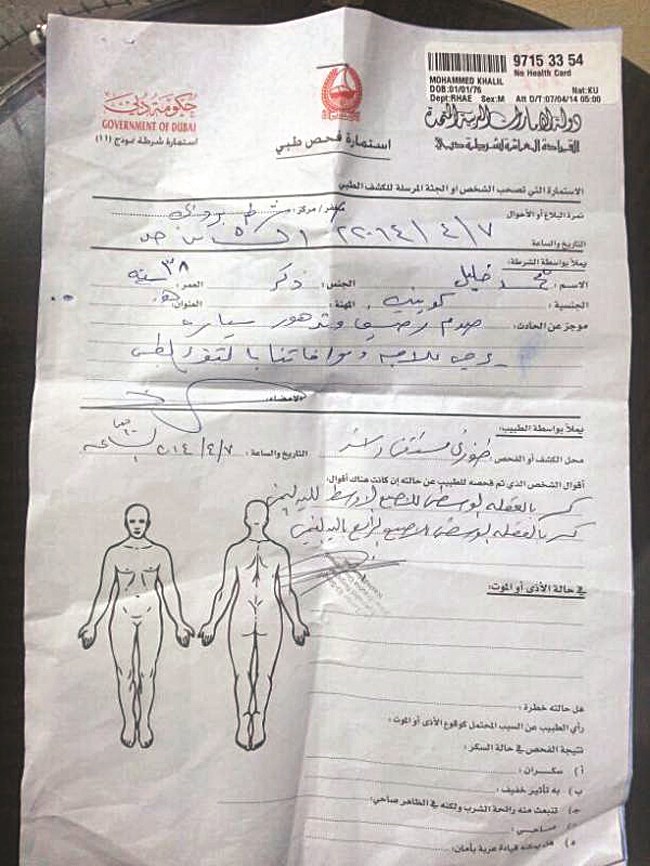 9715 33 54
No Health Card
MOHAMMED KHALIL
DOB:01/01/76 Nat:KU
Dept:RHAE Sex:M Att D/T:07/04/14 05:00
حكومة دبي
GOVERNMENT OF DUBAI
استمارة شرطة نموذج (١١)
دولة الإمارات العربية المتحدة
القيادة العامة لشرطة دبي
استمارة فحص طبي
الاستمارة التي تصحب الشخص او الجثة المرسلة للكشف الطبي
نمرة البلاغ أو الأحوال / مركز: شرطة
التاريخ والساعة ٢٠١٤/٤/٧
يملأ بواسطة الشرطة:
الاسم: محمد خليل الجنس: ذكر العمر: ٣٨ سنة
الجنسية: كويتي المهنة: العنوان:
موجز عن الحادث: صدم رصيف وتدهور سيارة
يرجى
الامضاء:
يملأ بواسطة الطبيب:
محل الكشف أو الفحص: التاريخ والساعة: ٢٠١٤/٤/٧
أقوال الشخص الذي تم فحصه للطبيب عن حالته إن كانت هناك أقوال:
كسر بالعقلة الوسطى للاصبع الاوسط لليد اليمنى
كسر بالعقلة الوسطى للاصبع الرابع باليد اليمنى
في حالة الأذى أو الموت:
هل حالته خطرة:
رأي الطبيب عن السبب المحتمل كوقوع الأذى أو الموت:
نتيجة الفحص في حالة السكر:
أ) سكران:
ب) به تأثير خفيف:
ج) تنبعث منه رائحة الشرب ولكنه في الظاهر صاحي:
د) صاحي:
هـ) هل يمكنه قيادة عربة بأمان: